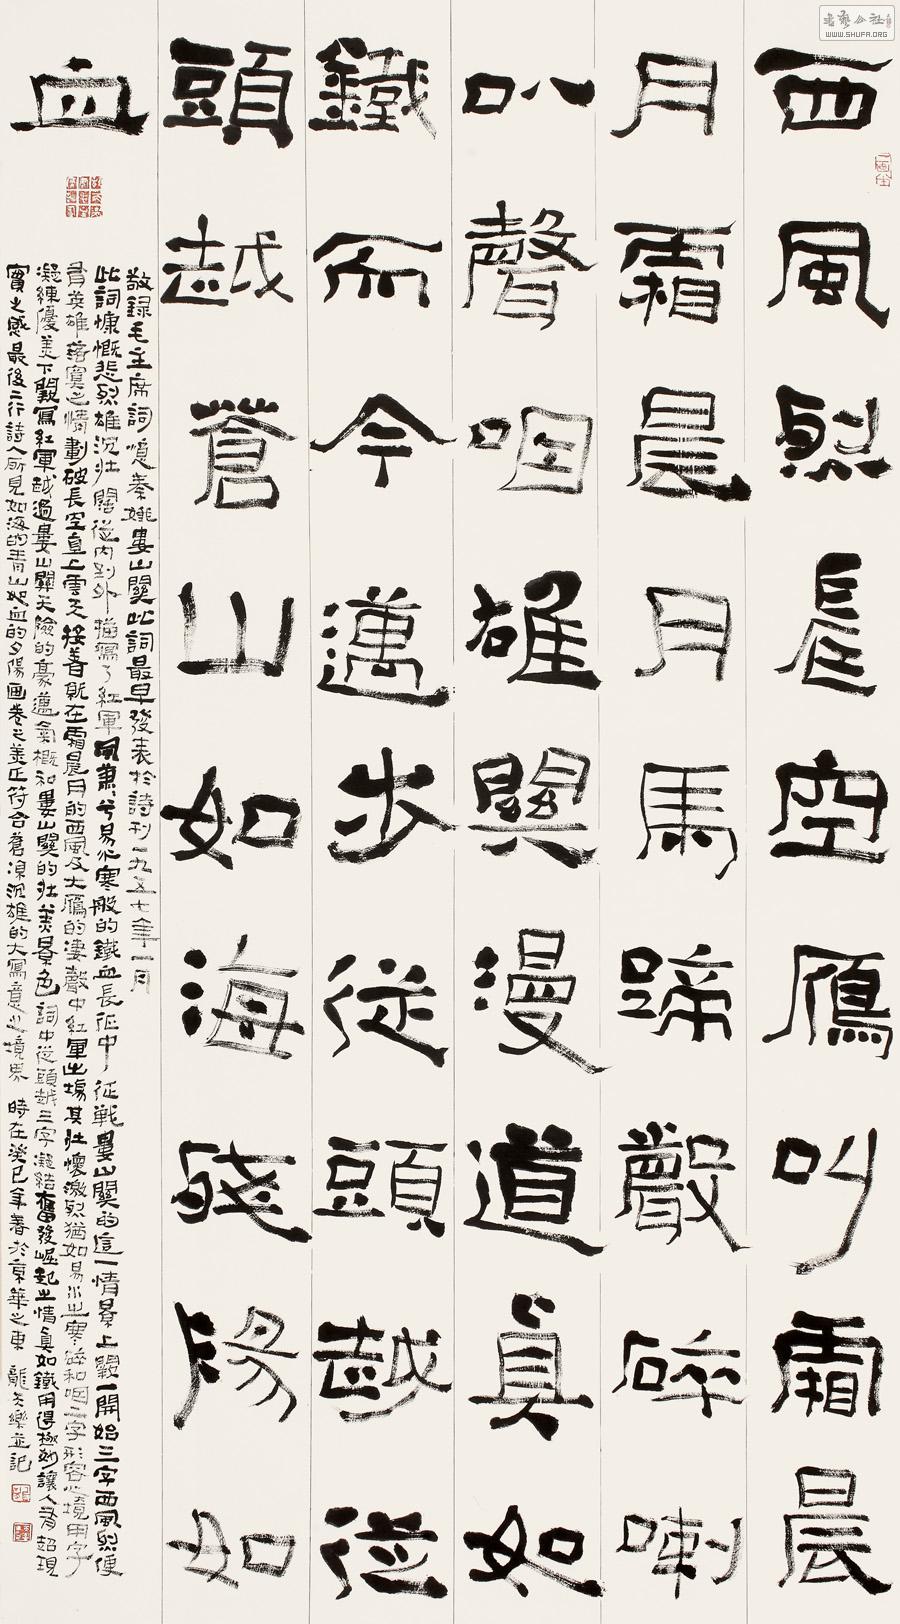 西風烈長空雁叫霜晨
月霜晨月馬蹄聲碎喇
叭聲咽雄關漫道真如
鐵而今邁步從頭越從
頭越蒼山如海殘陽如
血
敬録毛主席詞憶秦娥婁山關此詞最早發表於詩刊一九五七年一月
此詞慷慨悲烈雄沉壯闊從内到外描寫了紅軍風蕭兮易水寒般的鐵血長征中征戰婁山關的這一情景上闋一開始三字西風烈便
有英雄落寞之情劃破長空直上雲天接着就在霜晨月的西風及大雁的凄聲中紅軍出場其壯懷激烈猶如易水之寒碎和咽二字形容心境用字
凝練優美下闋寫紅軍越過婁山關天險的豪邁氣概和婁山關的壯美景色詞中從頭越三字凝結奮發崛起之情真如鐵用得極妙讓人有超現
實之感最後二行詩人所見如海的青山如血的夕陽画卷之美正符合蒼凉沉雄的大寫意之境界 時在癸巳年春於京華之東 並記
書藝公社
WWW.SHUFA.ORG